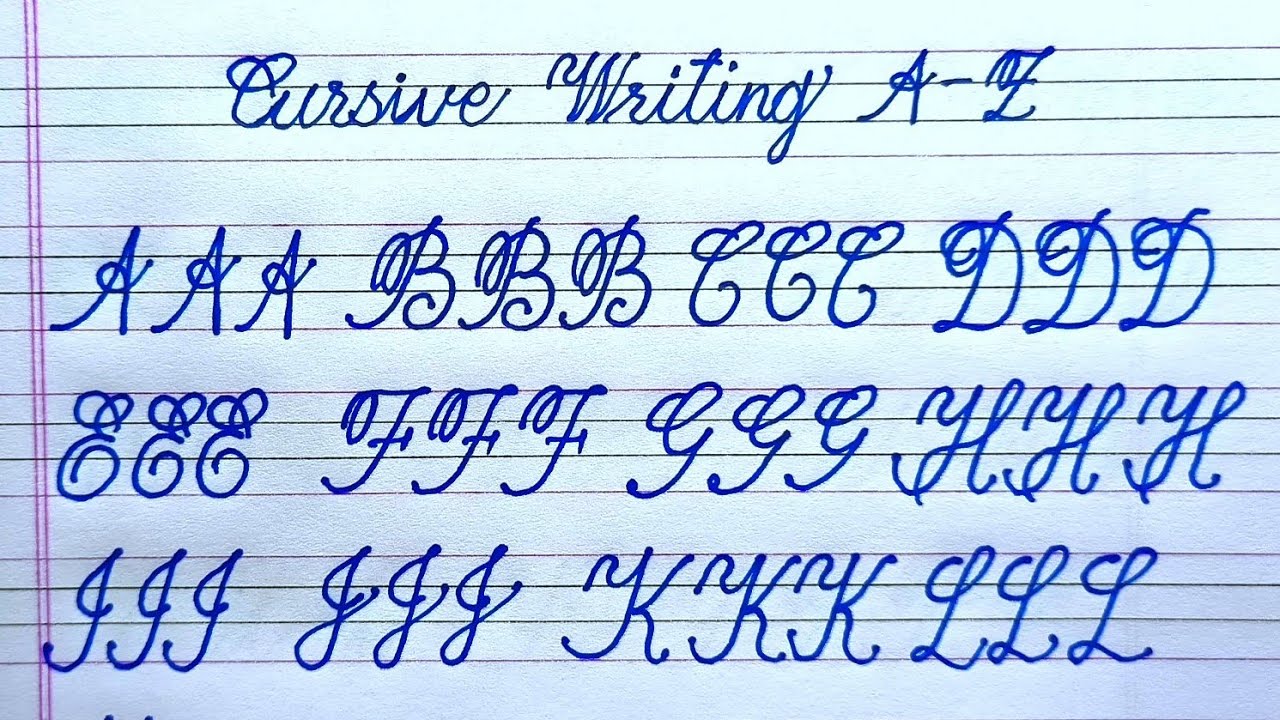 Cursive Writing A-Z
A A A B B B C C C D D D
E E E F F F G G G H H H
I I I J J J K K K L L L